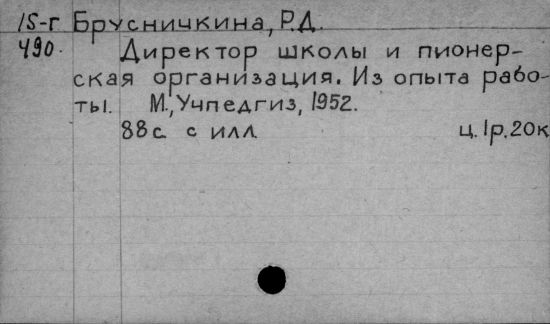 15-г Брусничкина, Р.Д.
490. Директор школы и пионер-
ская организация. Из опыта рабо-
ты. М., Учпедгиз, 1952.
88 с. с илл. ц. 1р. 20к